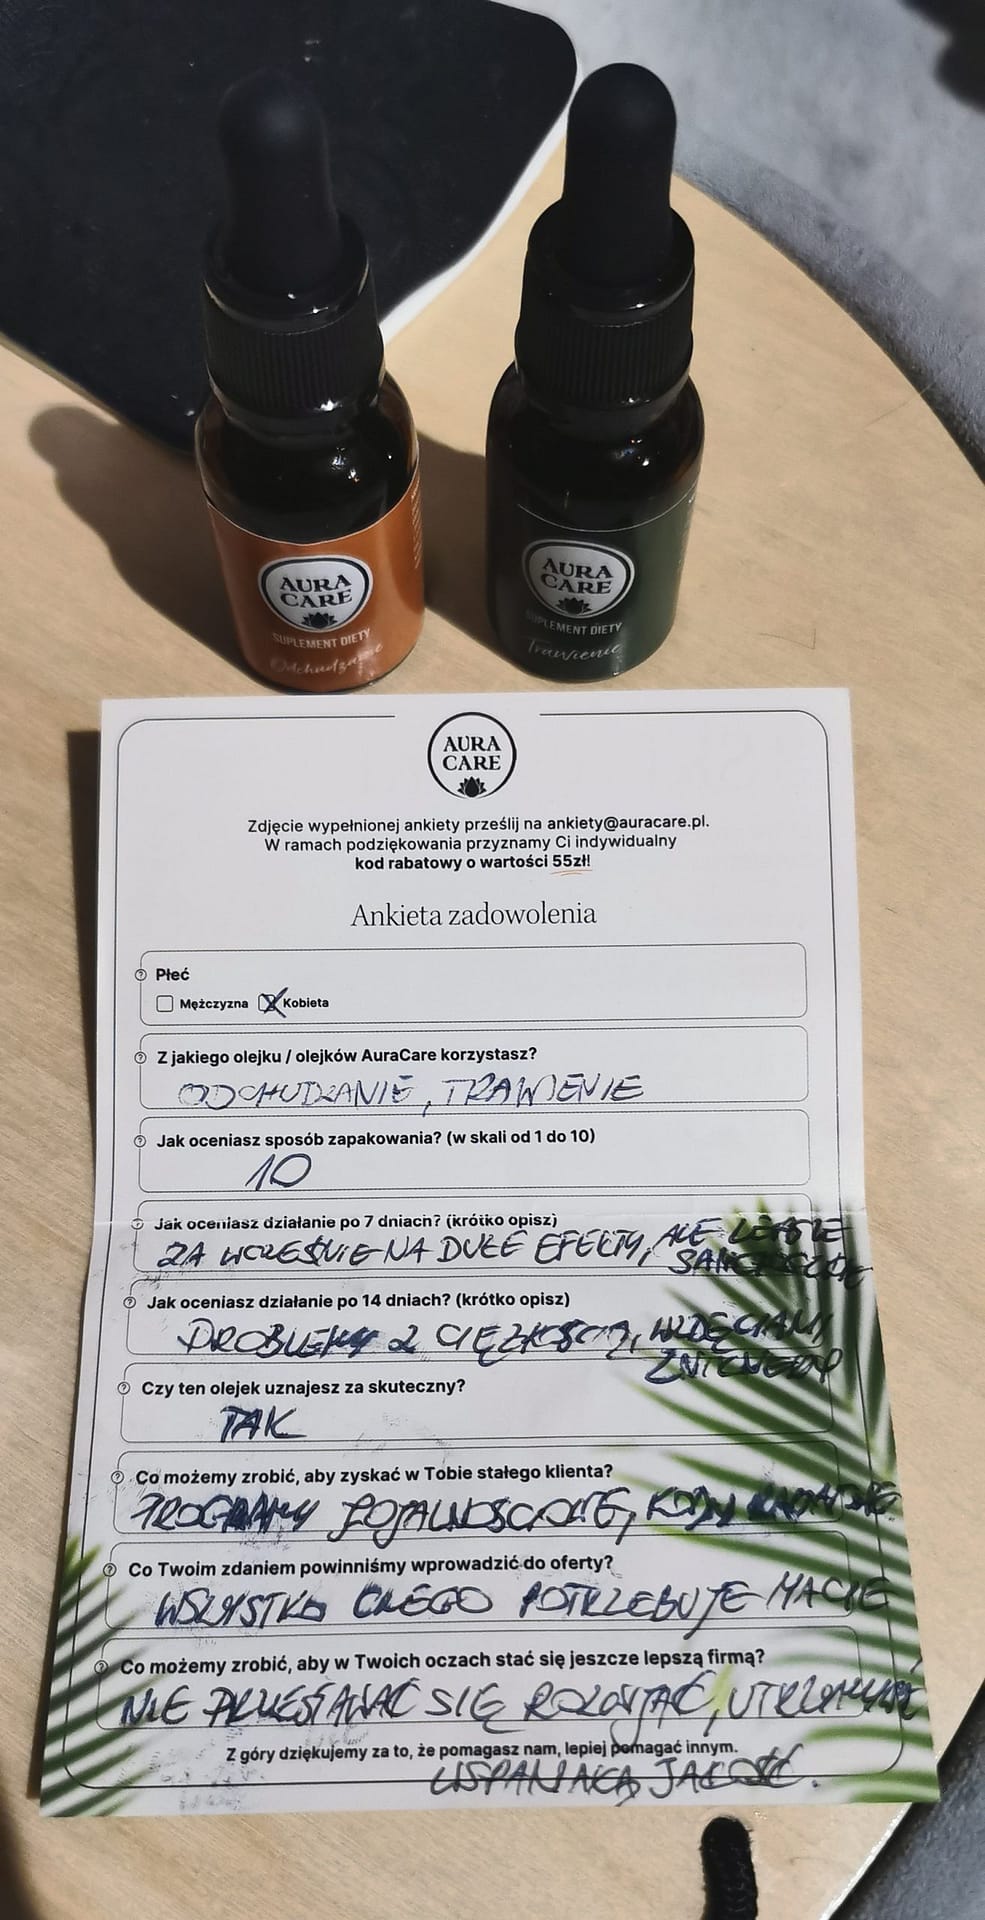 AURA
CARE
SUPLEMENT DIETY
Odchudzanie
AURA
CARE
SUPLEMENT DIETY
Trawienie
AURA
CARE
Zdjęcie wypełnionej ankiety prześlij na ankiety@auracare.pl.
W ramach podziękowania przyznamy Ci indywidualny
kod rabatowy o wartości 55zł!
Ankieta zadowolenia
Płeć
Mężczyzna Kobieta
Z jakiego olejku / olejków AuraCare korzystasz?
ODCHUDZANIE, TRAWIENIE
Jak oceniasz sposób zapakowania? (w skali od 1 do 10)
10
Jak oceniasz działanie po 7 dniach? (krótko opisz)
ZA WCZEŚNIE NA DUŻE EFEKTY, ALE LEPSZE
Jak oceniasz działanie po 14 dniach? (krótko opisz)
PROBLEMY Z CIĘŻKOŚCIĄ, WZDĘCIAMI,
ZNIKNĘŁY
Czy ten olejek uznajesz za skuteczny?
TAK
Co możemy zrobić, aby zyskać w Tobie stałego klienta?
PROGRAMY LOJALNOŚCIOWE, KODY RABATOWE.
Co Twoim zdaniem powinniśmy wprowadzić do oferty?
WSZYSTKO CZEGO POTRZEBUJE MACIE
Co możemy zrobić, aby w Twoich oczach stać się jeszcze lepszą firmą?
NIE PRZESTAWAĆ SIĘ ROZWIJAĆ, UTRZYMYWAĆ
Z góry dziękujemy za to, że pomagasz nam, lepiej pomagać innym.
WSPANIAŁĄ JAKOŚĆ.